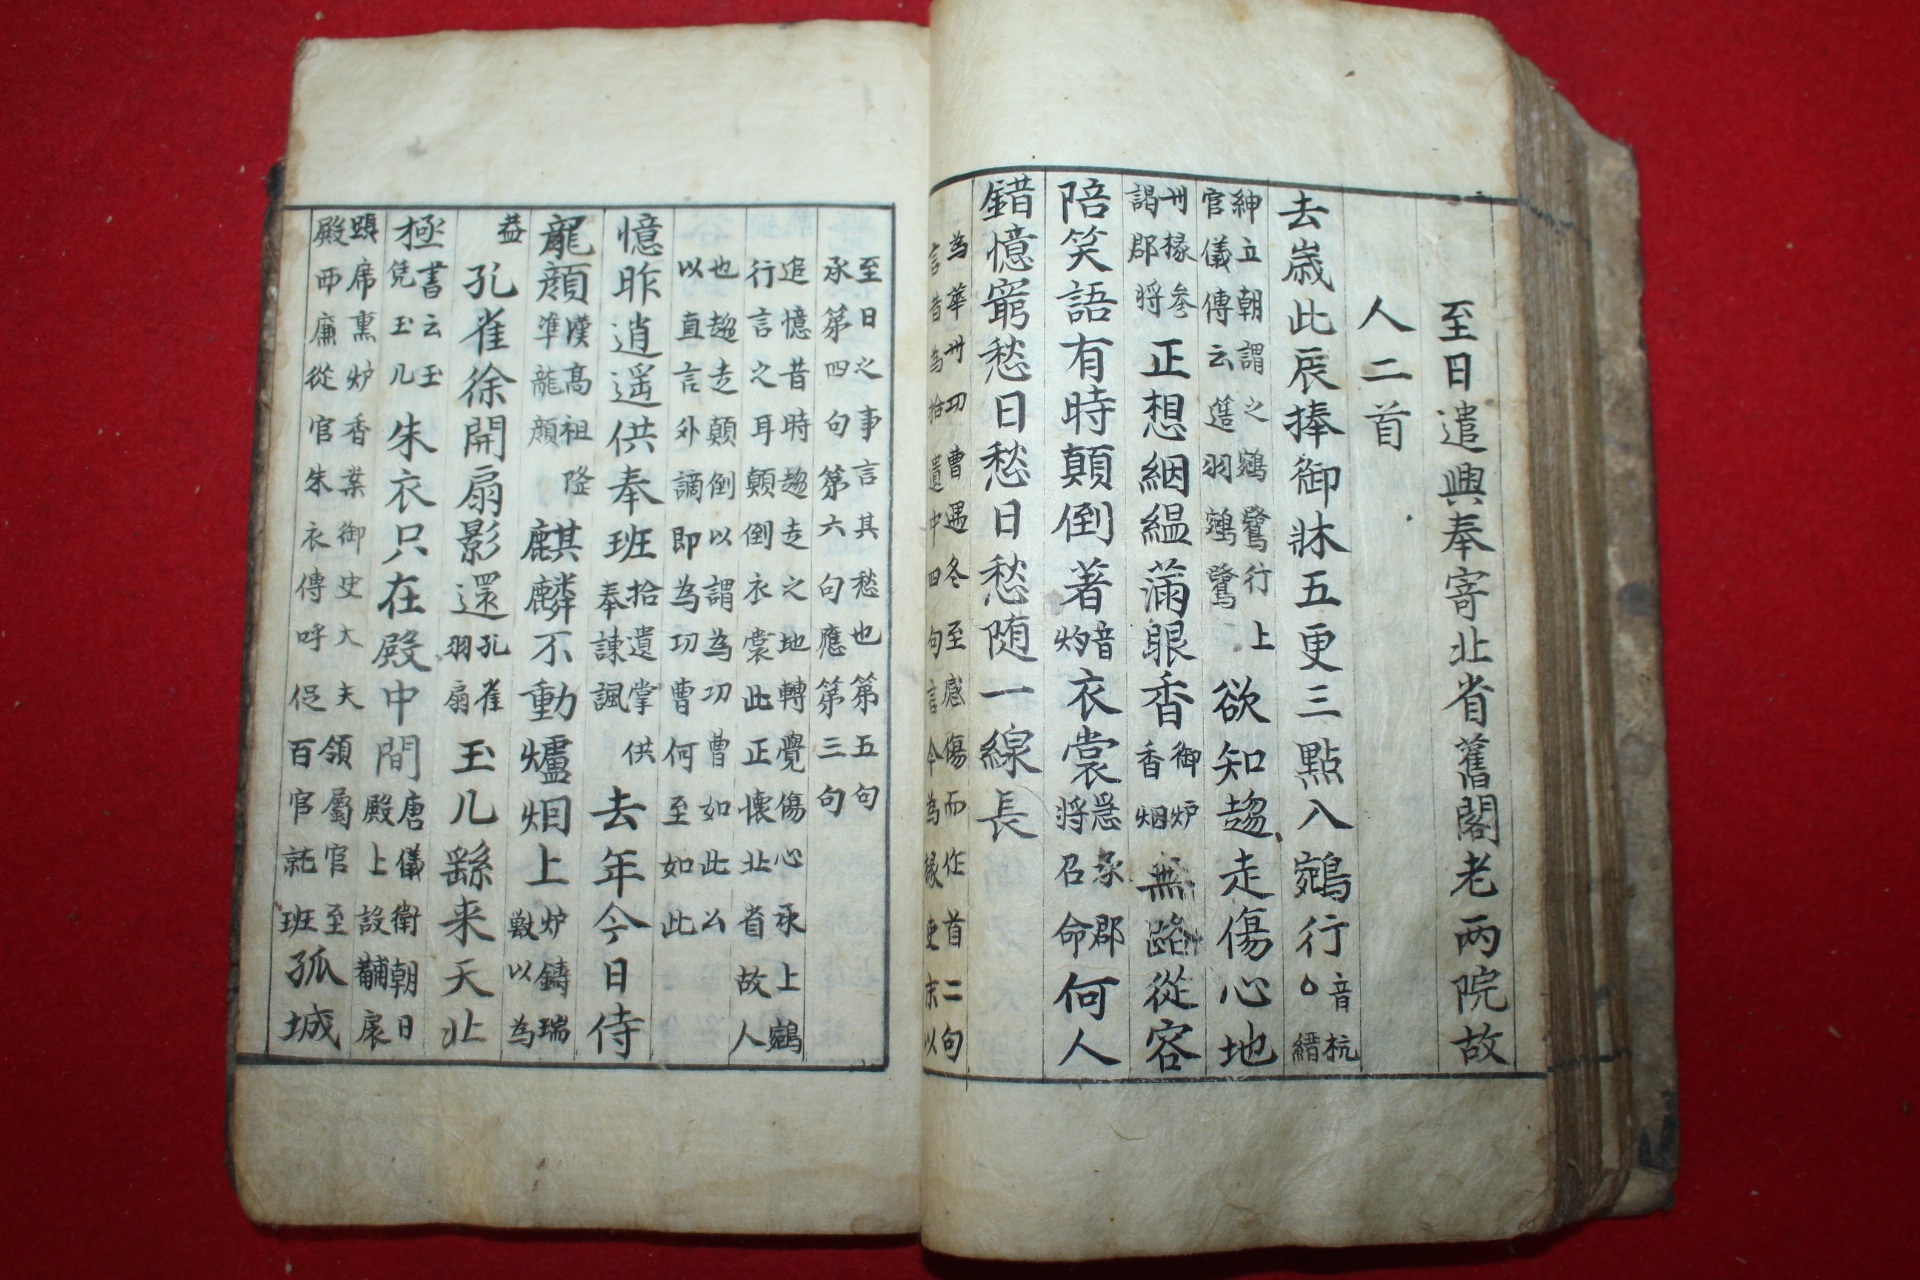 至日遣興奉寄北省舊閣老两院故
人二首
去歲此辰捧御牀五更三點入鵷行音杭○縉
紳立朝謂之鵷鷺行上官儀傳云筵羽鵷鷺欲知趨走傷心地
州掾參謁郡將正想絪縕滿眼香御炉香烟無路從容
陪笑語有時顛倒著音灼衣裳承郡將召命何人
錯憶窮愁日愁日愁随一線長
為華州功曹遇冬至感傷而作首二句言昔為拾遺中四句言今為掾更末以
至日之事言其愁也第五句承第四句第六句應第三句
追憶昔時趨走之地轉覺傷心承上鵷行言之耳顛倒衣裳此正懷北省故人
也趨走顛倒以謂為功曹如此公以直言外謫即為功曹何至如此
憶昨逍遥供奉班拾遺掌供奉諫諷去年今日侍
龍顔漢高祖隆準龍顔麒麟不動爐烟上炉鑄瑞獸以為
益孔雀徐開扇影還孔雀羽扇玉几繇来天北
極書云玉凭玉几朱衣只在殿中間唐儀衛朝日殿上設黼扆
躡席熏炉香案御史大夫領屬官至殿西廉從官朱衣傳呼促百官就班孤城